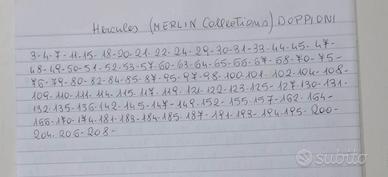 Hercules (MERLIN Collections) DOPPIONI
3-4-7-11-15-18-20-21-22-24-29-30-31-33-44-45-47-
48-49-50-51-52-53-57-60-63-64-65-66-67-68-70-75-
76-79-80-82-84-85-87-95-97-98-100-101-102-104-108-
109-110-111-114-115-117-119-121-122-123-125-127-130-131-
132-135-136-142-145-147-149-152-155-157-162-164-
166-170-174-181-183-184-185-187-191-193-194-195-200-
204-206-208-
subito